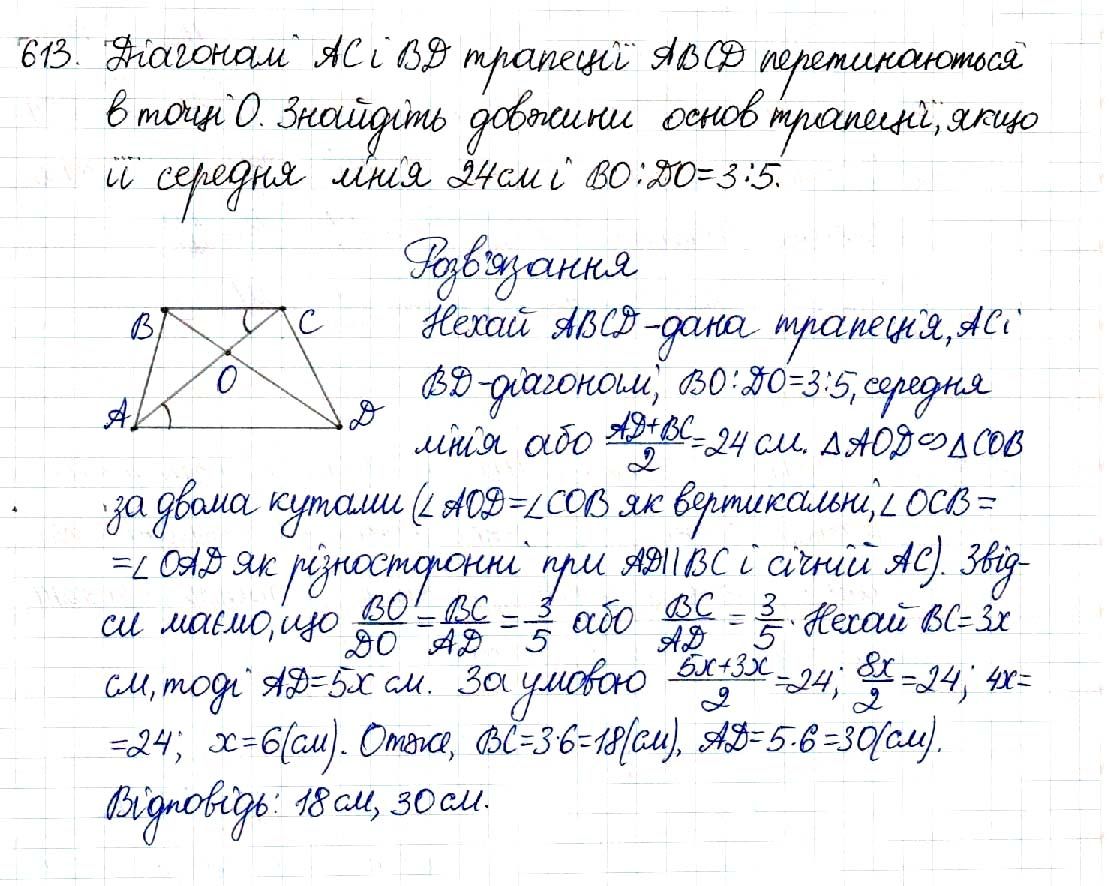 613. Діагоналі AC і BD трапеції ABCD перетинаються
в точці O. Знайдіть довжини основ трапеції, якщо
її середня лінія 24 см і BO:DO=3:5.
Розв'язання
B
C
O
A
D
Нехай ABCD-дана трапеція, AC і
BD-діагоналі, BO:DO=3:5, середня
лінія або (AD+BC)/2=24 см. △AOD∽△COB
за двома кутами (∠AOD=∠COB як вертикальні, ∠OCB=
=∠OAD як різносторонні при AD||BC і січній AC). Звід-
си маємо, що BO/DO=BC/AD=3/5 або BC/AD=3/5. Нехай BC=3x
см, тоді AD=5x см. За умовою (5x+3x)/2=24; 8x/2=24; 4x=
=24; x=6(см). Отже, BC=3·6=18(см), AD=5·6=30(см).
Відповідь: 18 см, 30 см.